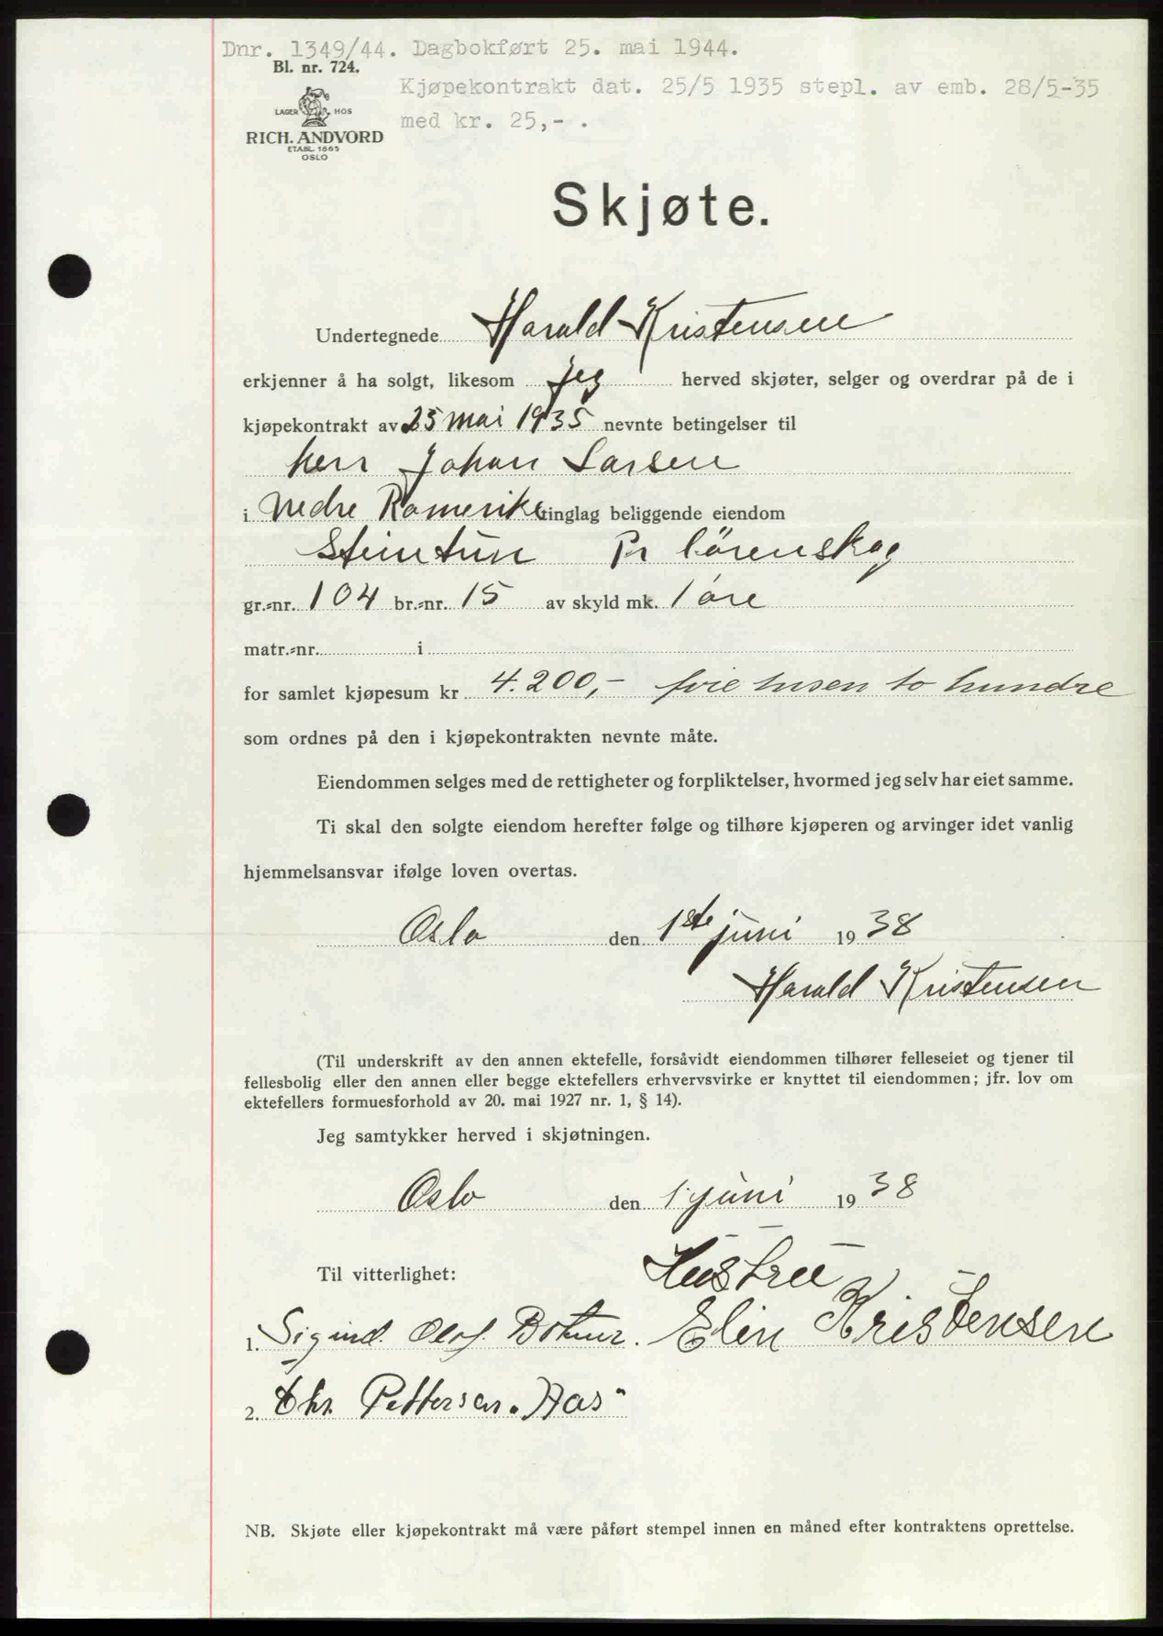 Dnr. 1349/44. Dagbokført 25. mai 1944.
Bl. nr. 724.
Kjøpekontrakt dat. 25/5 1935 stepl. av emb. 28/5-35
med kr. 25,- .
LAGER HOS
RICH. ANDVORD
ETABL. 1865
OSLO
Skjøte.
Undertegnede Harald Kristensen
erkjenner å ha solgt, likesom jeg herved skjøter, selger og overdrar på de i
kjøpekontrakt av 25 mai 1935 nevnte betingelser til
herr Johan Larsen
i Nedre Romerike tinglag beliggende eiendom
Steintun Pr Lørenskog
gr.-nr. 104 br.-nr. 15 av skyld mk. 1 øre
matr.-nr. i
for samlet kjøpesum kr 4.200,- fire tusen to hundre
som ordnes på den i kjøpekontrakten nevnte måte.
Eiendommen selges med de rettigheter og forpliktelser, hvormed jeg selv har eiet samme.
Ti skal den solgte eiendom herefter følge og tilhøre kjøperen og arvinger idet vanlig
hjemmelsansvar ifølge loven overtas.
Oslo den 1ste juni 1938
Harald Kristensen
(Til underskrift av den annen ektefelle, forsåvidt eiendommen tilhører felleseiet og tjener til
fellesbolig eller den annen eller begge ektefellers erhvervsvirke er knyttet til eiendommen; jfr. lov om
ektefellers formuesforhold av 20. mai 1927 nr. 1, § 14).
Jeg samtykker herved i skjøtningen.
Oslo den 1. juni 1938
Hustru
Til vitterlighet:
1. Sigurd Olof. Elin Kristensen
2. Chr. Pettersen. Aas
NB. Skjøte eller kjøpekontrakt må være påført stempel innen en måned efter kontraktens oprettelse.